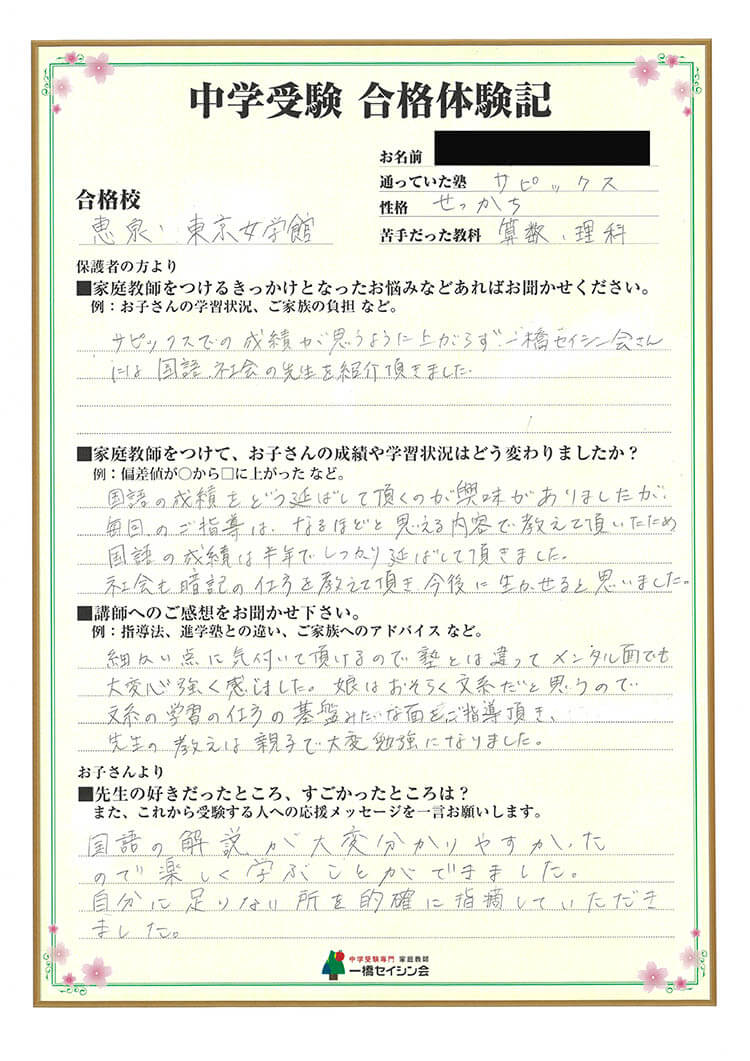 中学受験 合格体験記
お名前
通っていた塾 サピックス
性格 せっかち
合格校
恵泉、東京女学館
苦手だった教科 算数、理科
保護者の方より
■家庭教師をつけるきっかけとなったお悩みなどあればお聞かせください。
例：お子さんの学習状況、ご家族の負担 など。
サピックスでの成績が思うように上がらず 一橋セイシン会さん
には国語、社会の先生を紹介頂きました。
■家庭教師をつけて、お子さんの成績や学習状況はどう変わりましたか？
例：偏差値が○から□に上がった など。
国語の成績をどう延ばして頂くのが興味がありましたが、
毎回のご指導は、なるほどと思える内容で教えて頂いたため
国語の成績は半年でしっかり延ばして頂きました。
社会も暗記の仕方を教えて頂き今後に生かせると思いました。
■講師へのご感想をお聞かせ下さい。
例：指導法、進学塾との違い、ご家族へのアドバイス など。
細かい点に気付いて頂けるので塾とは違ってメンタル面でも
大変心強く感じました。娘はおそらく文系だと思うので
文系の学習の仕方の基盤みたいな面をご指導頂き、
先生の教えは親子で大変勉強になりました。
お子さんより
■先生の好きだったところ、すごかったところは？
また、これから受験する人への応援メッセージを一言お願いします。
国語の解説が大変分かりやすかった
ので楽しく学ぶことができました。
自分に足りない所を的確に指摘していただき
ました。
中学受験専門 家庭教師
一橋セイシン会